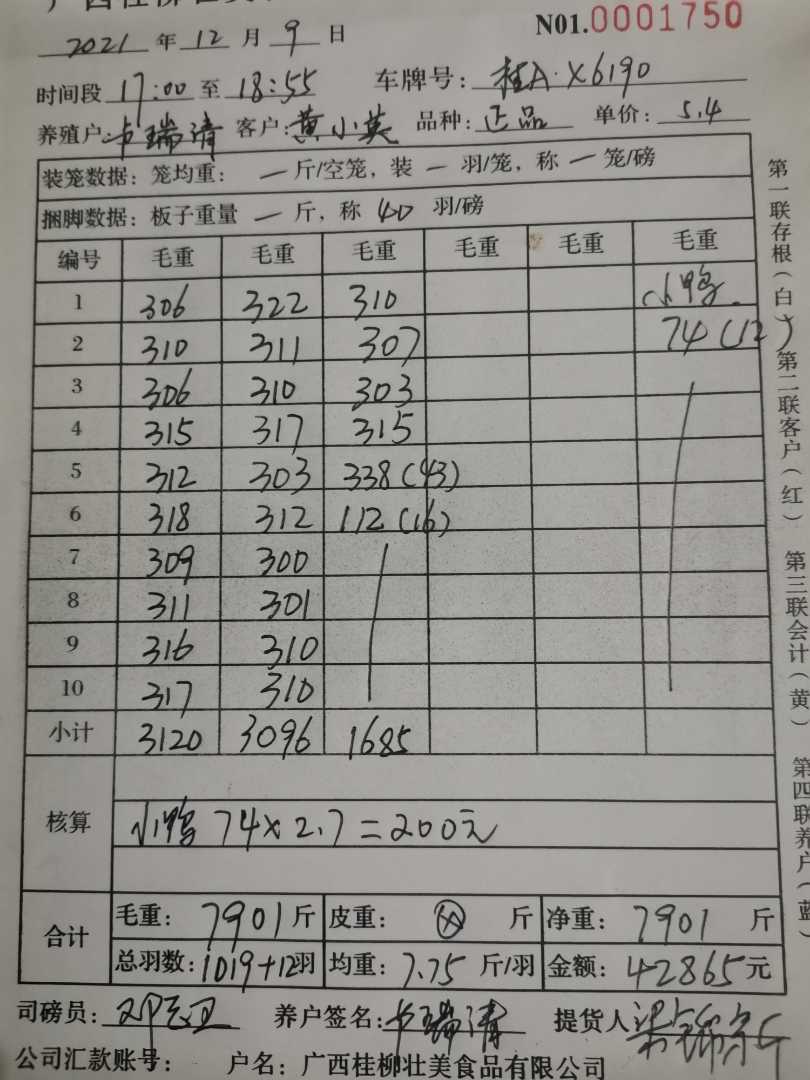 2021 年 12 月 9 日 N01.0001750
时间段 17:00 至 18:55 车牌号: 桂A·X6190
养殖户: 卢瑞清 客户: 黄小英 品种: 正品 单价: 5.4
装笼数据: 笼均重: 一 斤/空笼, 装 一 羽/笼, 称 一 笼/磅
捆脚数据: 板子重量 一 斤, 称 40 羽/磅
编号 毛重 毛重 毛重 毛重 毛重 毛重
1 306 322 310 小鸭
2 310 311 307 74(12)
3 306 310 303
4 315 317 315
5 312 303 338(43)
6 318 312 112(16)
7 309 300
8 311 301
9 316 310
10 317 310
小计 3120 3096 1685
核算 小鸭 74×2.7=200元
合计 毛重: 7901 斤 皮重: 斤 净重: 7901 斤
总羽数: 1019+12羽 均重: 7.75 斤/羽 金额: 42865元
司磅员: 养户签名: 卢瑞清 提货人
公司汇款账号: 户名: 广西桂柳壮美食品有限公司
第一联存根(白) 第二联客户(红) 第三联会计(黄) 第四联养户(蓝)